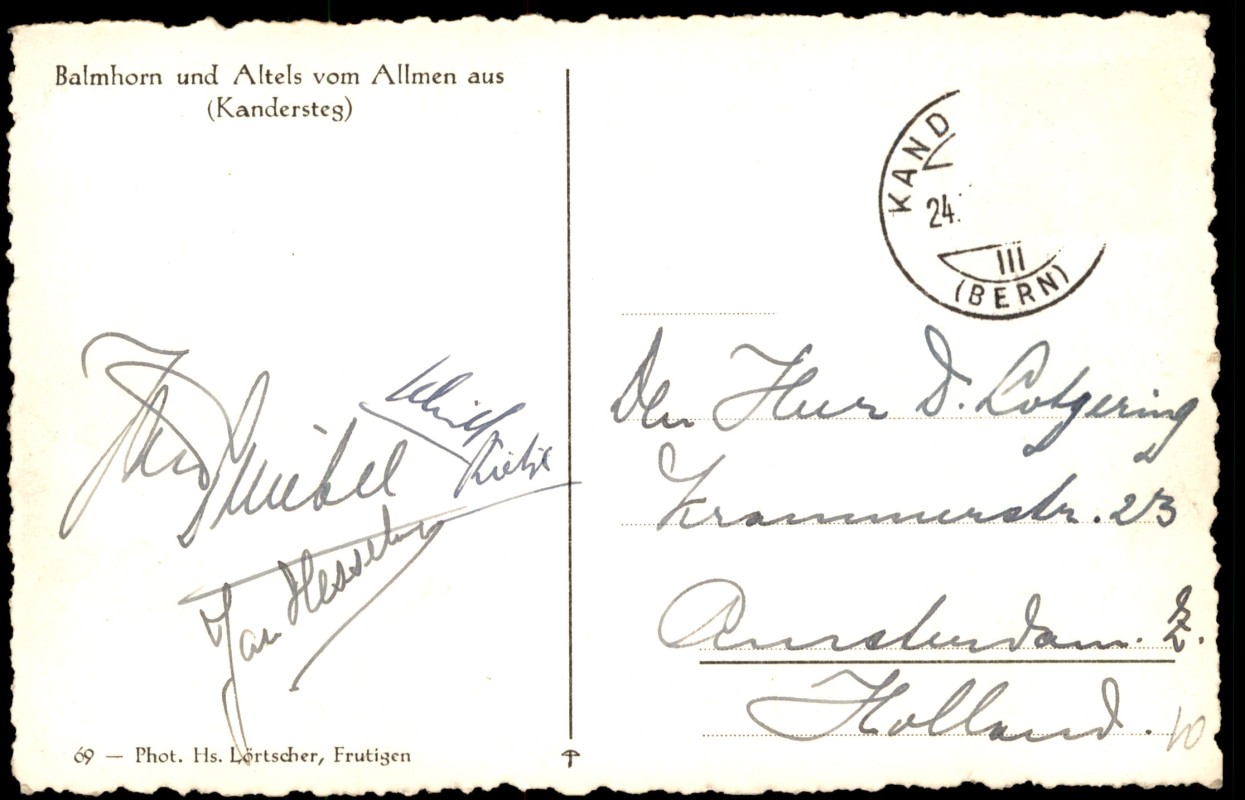 Balmhorn und Altels vom Allmen aus
(Kandersteg)
KAND
24.
III
(BERN)
Den Heer D. Lotgering
Krammerstr. 23
Amsterdam. Z.
Holland.
10
Jan
Jan Hesseling
69 — Phot. Hs. Lörtscher, Frutigen